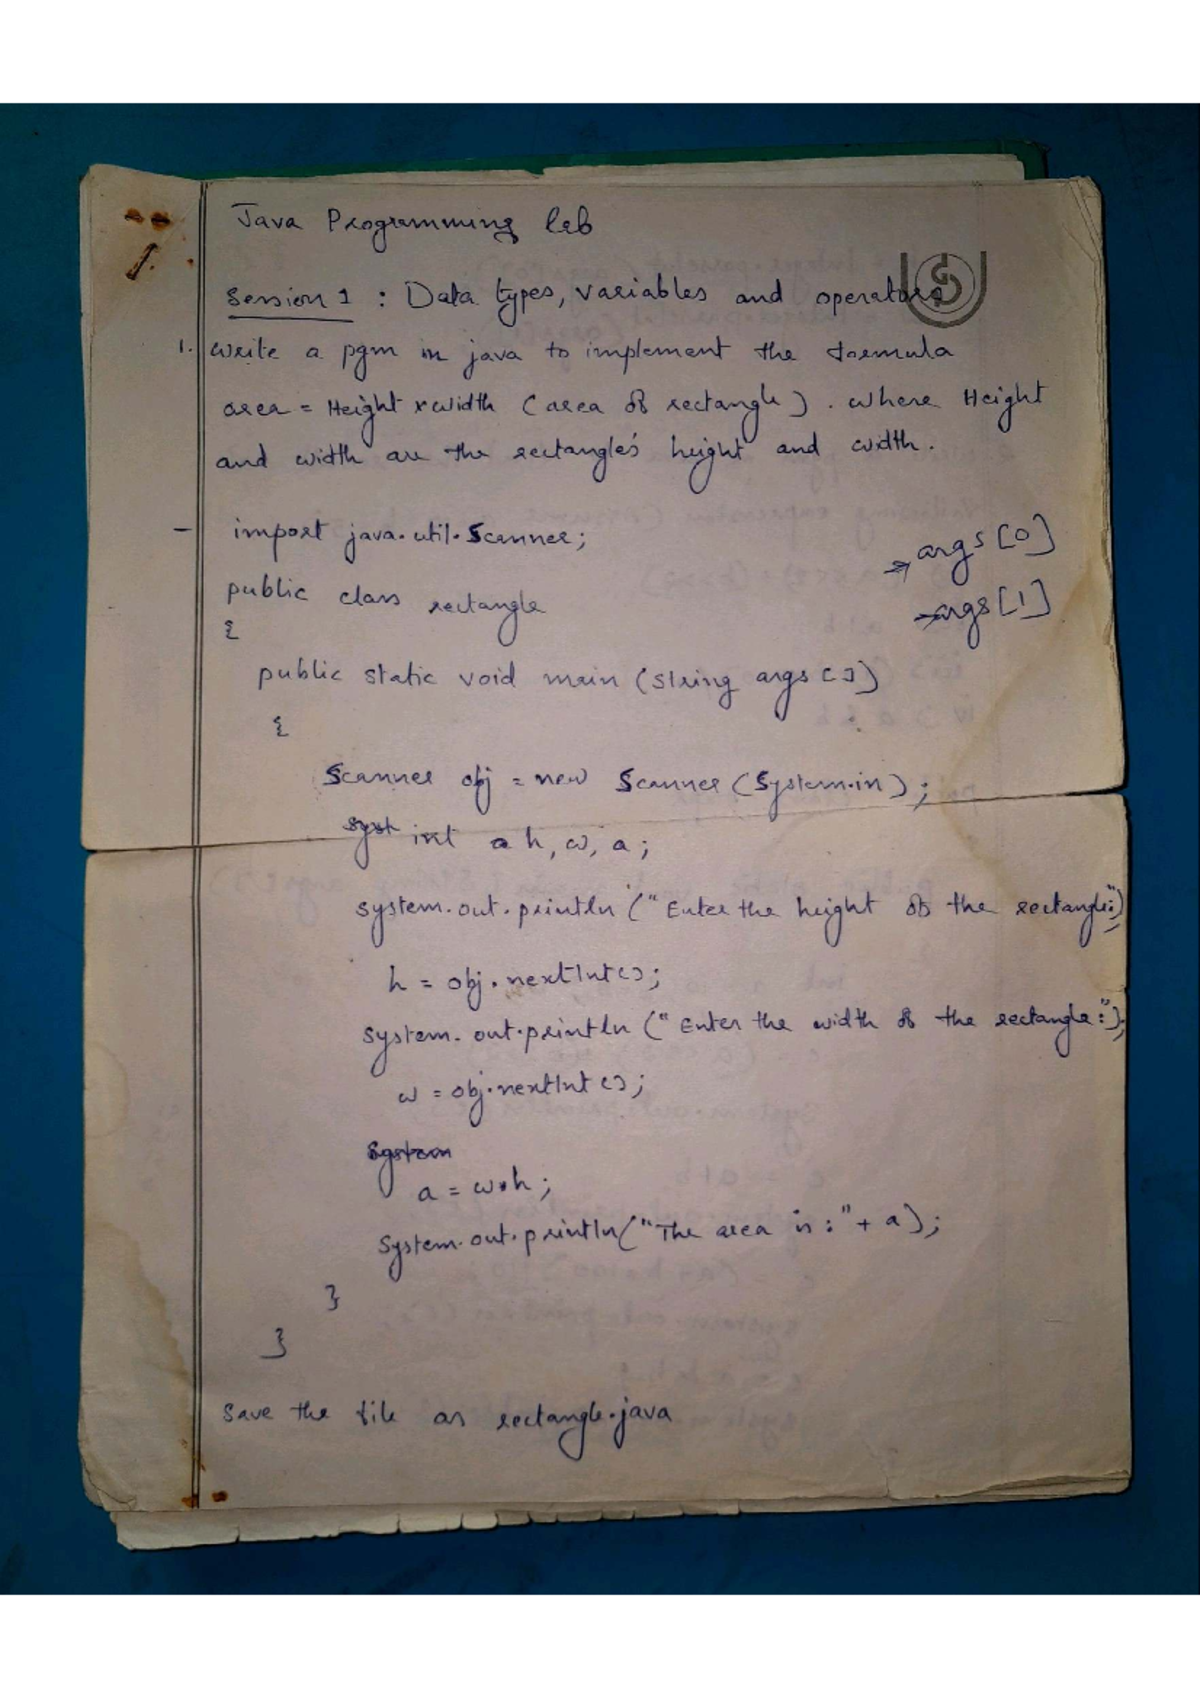 1.
Java Programming lab
Session 1 : Data types, variables and operators
1. write a pgm in java to implement the formula
area = Height x width (area of rectangle). where Height
and width are the rectangle's height and width.
- import java.util.Scanner;
→ args[0]
public class rectangle
→ args[1]
{
public static void main (String args[])
{
Scanner obj = new Scanner (System.in);
syst int a h, w, a;
system.out.println ("Enter the height of the rectangle:");
h = obj.nextInt();
system.out.println ("Enter the width of the rectangle:");
w = obj.nextInt();
System
a = w*h;
System.out.println("The area is :" + a);
}
}
Save the file as rectangle.java